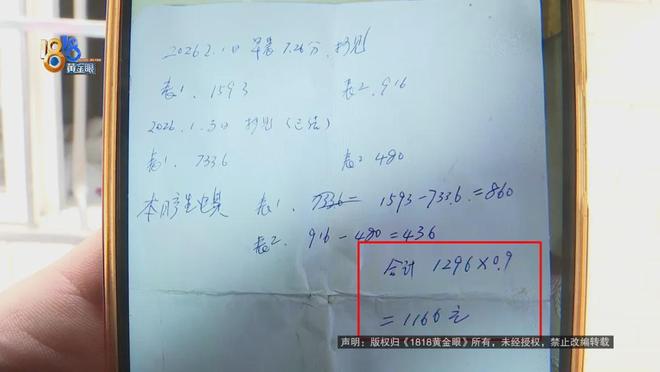 1818
黄金眼
2026.2.1日 早晨 7.26分. 抄见
表1. 1593 表2. 916
2026.1.3日 抄见(已结)
表1. 733.6 表2 480
本月产生电费 表1. 733.6= 1593-733.6.=860
表2. 916-480=436
合计 1296×0.9
=1166元
声明:版权归《1818黄金眼》所有,未经授权,禁止改编转载